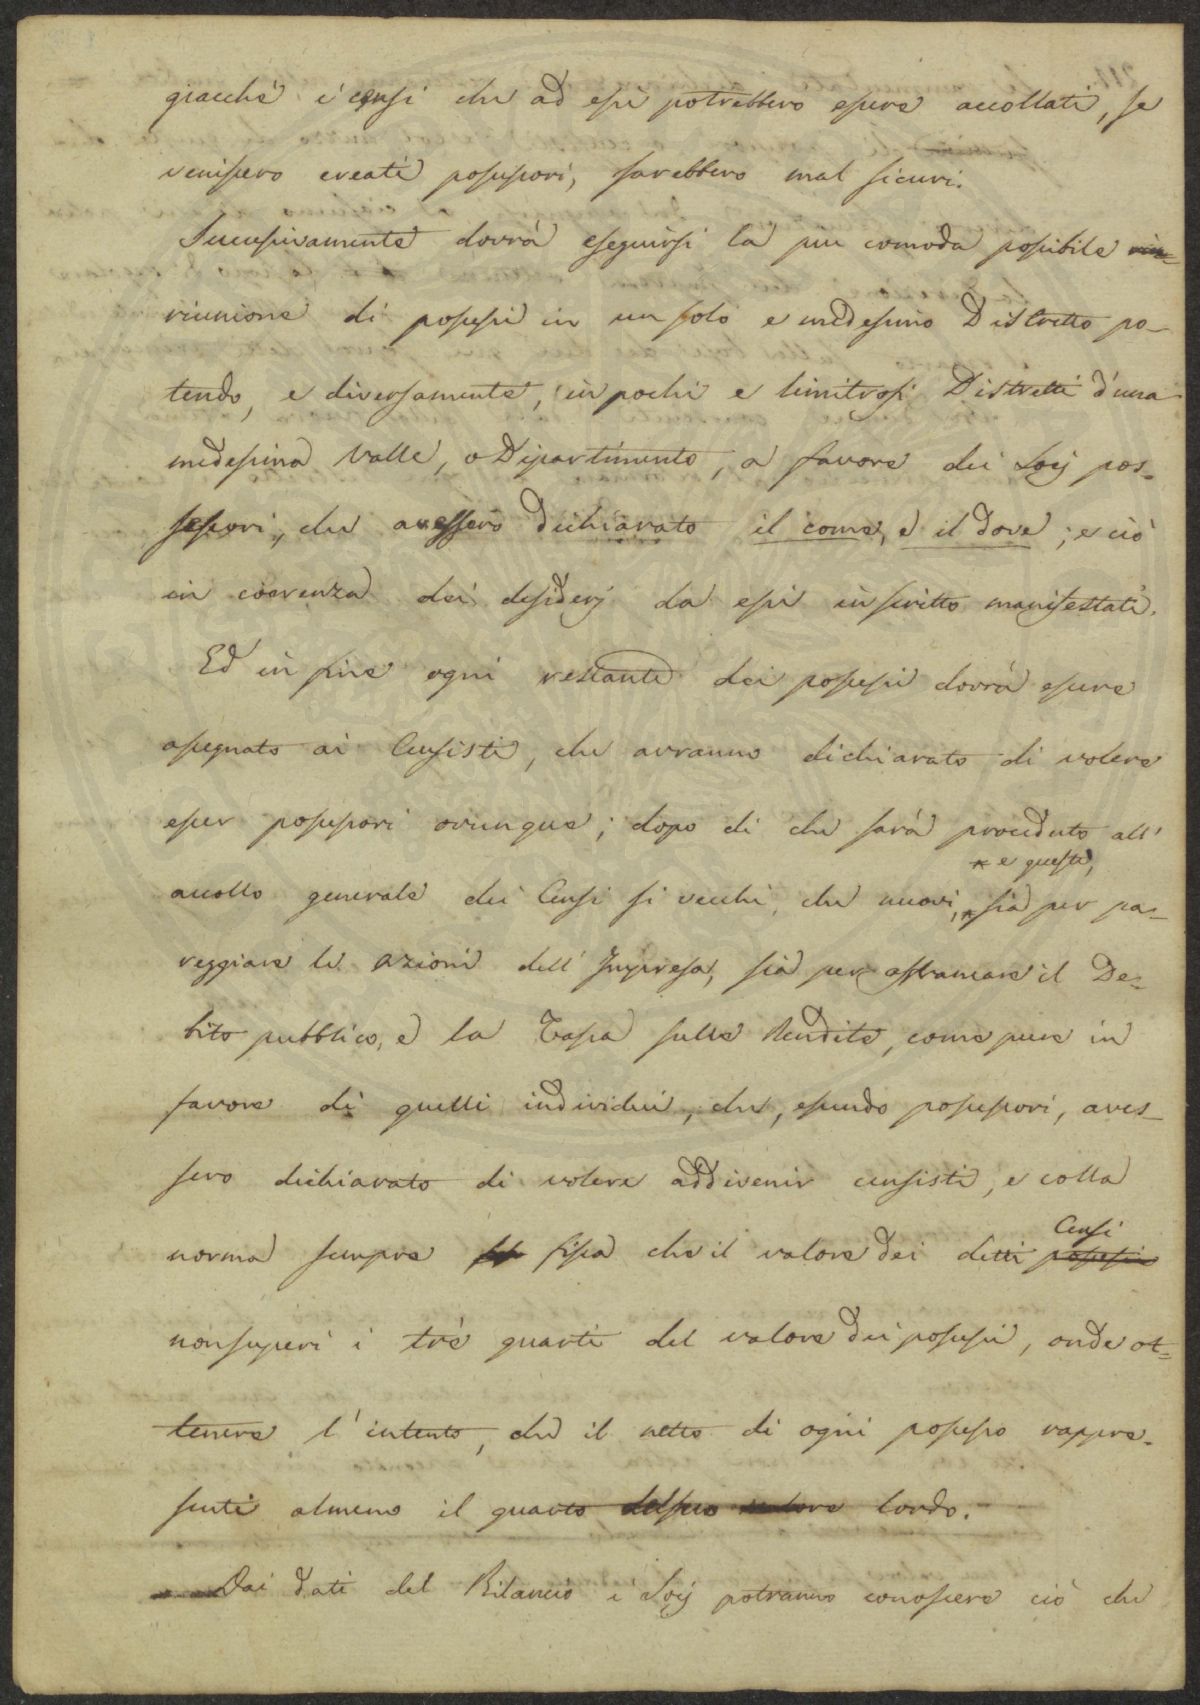 giacchè i censi che ad essi potrebbero essere accollati, se
venissero creati possessori, sarebbero mal sicuri.
Successivamente dovrà eseguirsi la piu comoda possibile
riunione di possessi in un solo e medesimo Distretto po-
tendo, e diversamente, in pochi e limitrofi Distretti d'una
medesima Valle, o Dipartimento, a favore dei Socj pos-
sessori, che avessero dichiarato il come, e il dove; e ciò
in coerenza dei desiderj da essi in scritto manifestati.
Ed in fine ogni restante dei possessi dovrà essere
assegnato ai Censisti, che avranno dichiarato di volere
esser possessori ovunque; dopo di che sarà proceduto all'
* e questi,
accollo generale dei Censi sì vecchi, che nuovi, * sia per pa-
reggiare le azioni dell' Impresa, sia per affrancare il De-
bito pubblico, e la Tassa sulle Rendite, come pure in
favore di quelli individui, che, essendo possessori, aves-
sero dichiarato di volere addivenir censisti, e colla
Censi
norma sempre fissa che il valore dei detti possessi
non superi i trè quarti del valore dei possessi, onde ot-
tenere l'intento, che il netto di ogni possesso rappre-
senti almeno il quarto del suo valore lordo.
Dai dati del Bilancio i Socj potranno conoscere ciò che